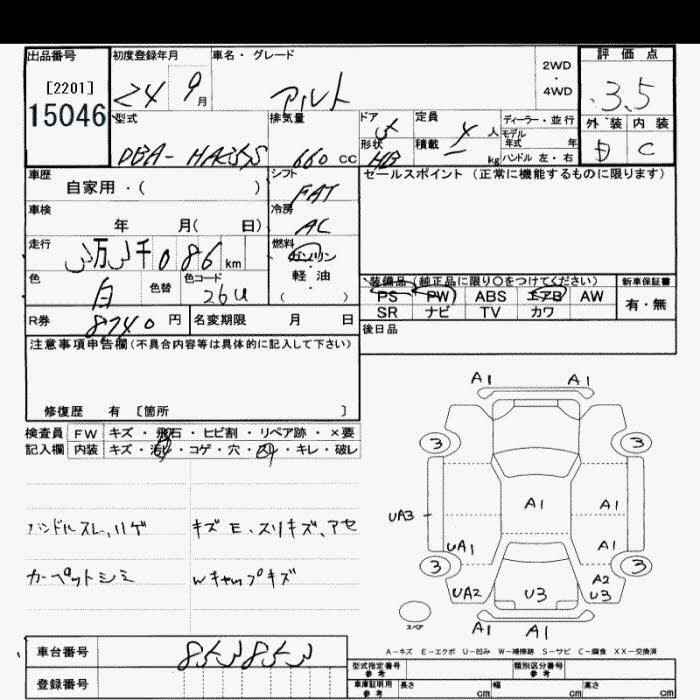 出品番号 初度登録年月 車名・グレード 2WD・4WD 評価点
[2201] 24 9月 アルト 3.5
15046
型式 排気量 ドア 定員 ディーラー・並行 外装 内装
DBA- 660cc 5 4人 モデル年式 年 C
形状 積載 kg ハンドル 左・右
車歴 シフト セールスポイント (正常に機能するものに限ります)
自家用・( ) FAT
車検 冷房
年 月( 日) AC
走行 燃料
3万3千086km ガソリン・軽油
色 色替 色コード ( )
白 26U
装備品 (純正品に限り○をつけてください) 新車保証書
PS PW ABS エアB AW 有・無
SR ナビ TV カワ
R券 8740円 名変期限 月 日 後日品
注意事項申告欄(不具合内容等は具体的に記入して下さい)
修復歴 有 [箇所 ]
検査員 FW キズ・飛石・ヒビ割・リペア跡・×要
記入欄 内装 キズ・汚れ・コゲ・穴・ ・キレ・破レ
A1 A1
3 3
A1 A1
UA3
UA1 A1
3 3
UA2 U3 A2
U3
スペア
A1 A1
ハンドルスレ、ハゲ キズE、スリキズ、アセ
カーペットシミ Wキャップキズ
A-キズ E-エクボ U-凹み W-補修跡 S-サビ C-腐食 XX-交換済
車台番号 853853
登録番号
型式指定番号 参考 類別区分番号 参考
車庫証明用 参考 長さ cm 幅 cm 高さ cm